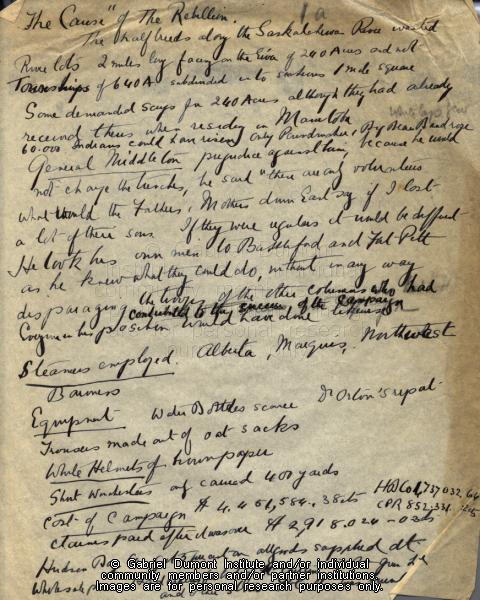 The "Cause" of the Rebellion. 1a
The half breeds along the Saskatchewan River wanted
River lots 2 miles long facing on the River of 240 Acres and not
Townships of 640 A subdivided into sections 1 mile square
Some demanded scrip for 240 Acres although they had already
received theirs when residing in Manitoba
60.000 Indians could have risen only Poundmaker, Big Bear
General Middleton prejudice against him, because he would
not charge the trenches, he said "there are only volunteers
what would the Fathers, Mothers down East say if I lost
a lot of their sons. If they were regulars it would be different
He took his own men to Battleford and Fort Pitt
as he knew what they could do, without in any way
disparaging the troops of the other columns who had
contributed to the success of the Campaign
Anyone in his position would have done likewise
Steamers employed. Alberta, Marquis, Northwest
Baroness
Equipment Water Bottles scarce Dr Orton's report
Trousers made out of oat sacks
White Helmets of brown paper
Short Winchesters only carried 400 yards
Cost of Campaign $4.451,584.38cts HBCo 1,737,032
claims paid after war over $2,918.024-03cts CPR 852.331
Hudson Bay on all goods supplied at
© Gabriel Dumont Institute and/or individual
community members and/or partner institutions.
Images are for personal research purposes only.